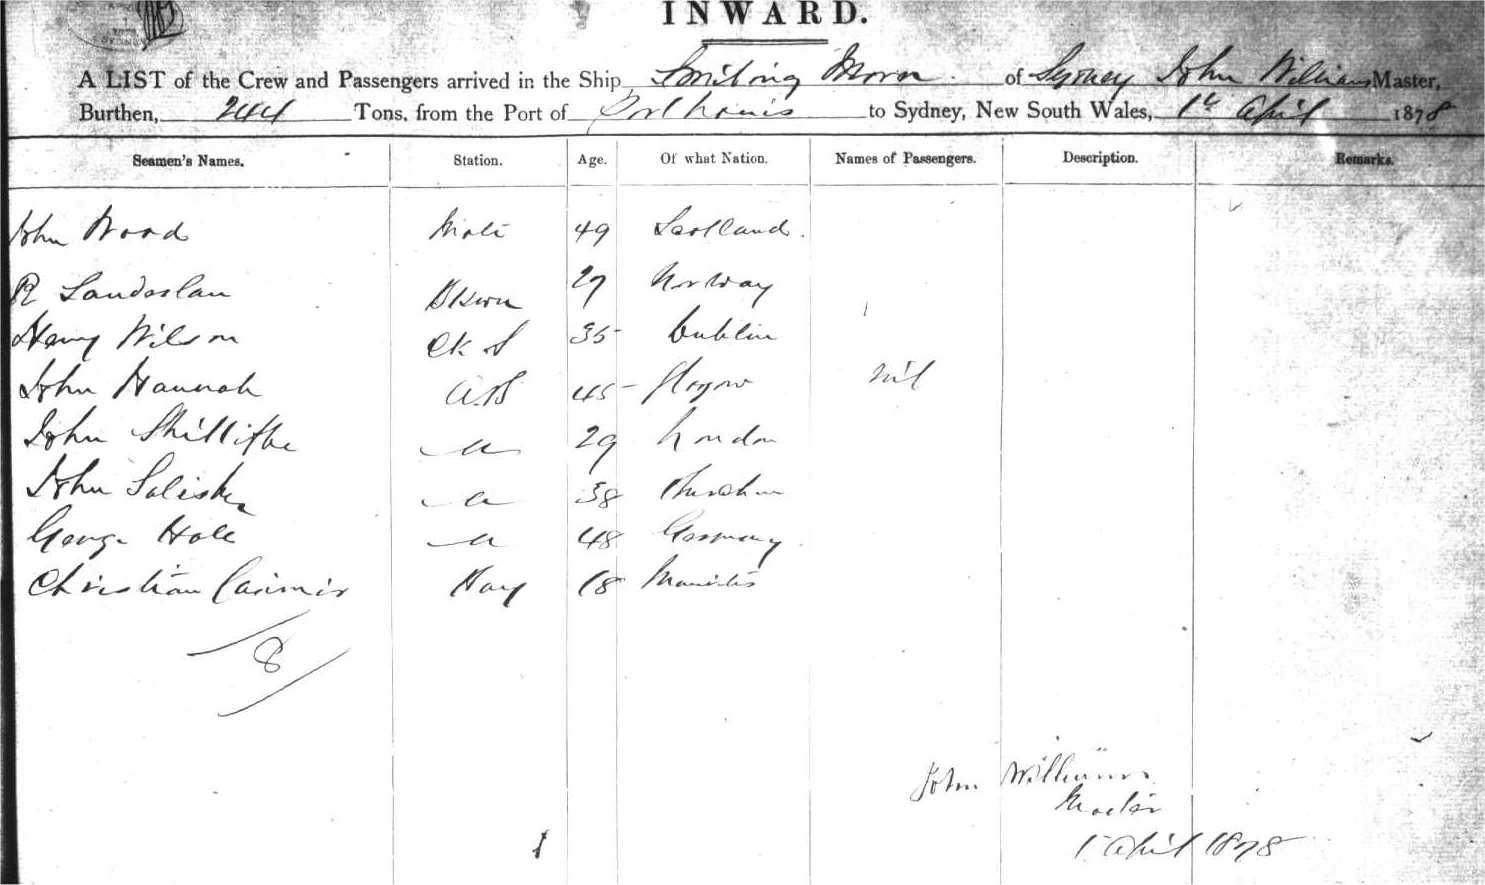 INWARD.
A LIST of the Crew and Passengers arrived in the Ship Smiling Morn of Sydney John Williams Master,
Burthen, 244 Tons, from the Port of Port Louis to Sydney, New South Wales, 1st April 1878
Seamen's Names. Station. Age. Of what Nation. Names of Passengers. Description. Remarks.
John Wood Mate 49 Scotland.
Bswn 27 Norway
Henry Wilson Ck & S 35 Dublin
John Hannah A.B 45 Glasgow nil
John Shilliffe " 29 London
John 38
George Hole " 48 Germany
Christian Casimir Boy 18 Mauritis
8
John Williams
Master
1 April 1878